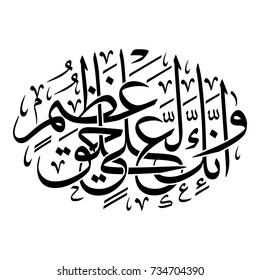 وَإِنَّكَ لَعَلَىٰ خُلُقٍ عَظِيمٍ
shutterstock.com · 734704390